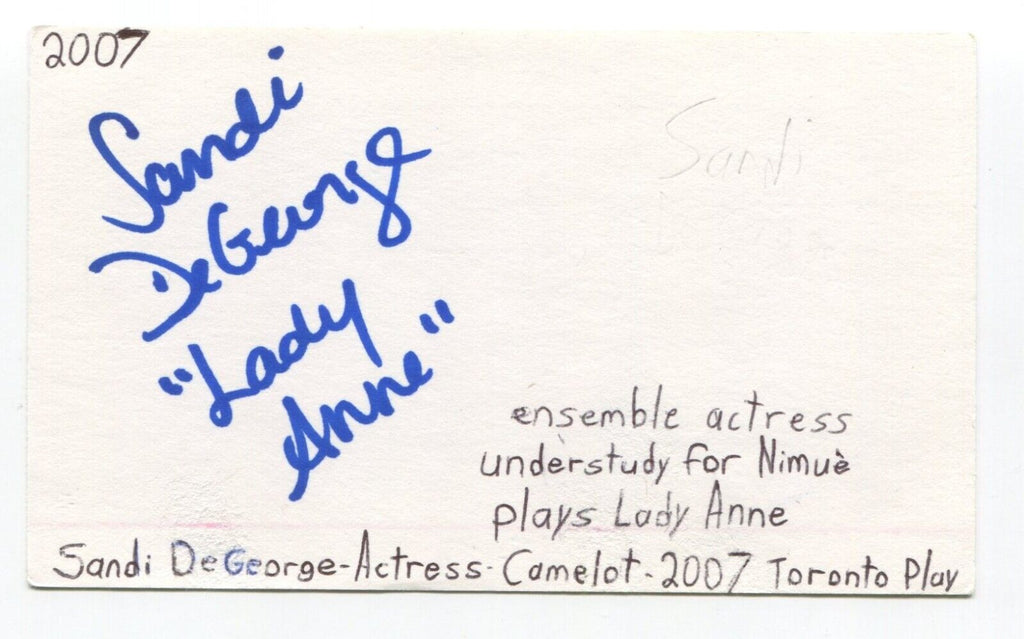 2007
Sandi
DeGeorge
"Lady
Anne"
Sandi
ensemble actress
understudy for Nimuè
plays Lady Anne
Sandi DeGeorge-Actress-Camelot-2007 Toronto Play